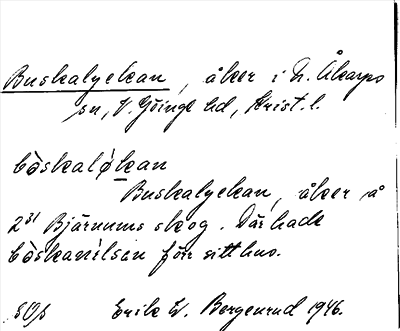 Buskalyckan, åker i N. Åkarps
sn, V. Göinge hd, Krist. l.
bòskaló̱kan
Buskalyckan, åker å
2³¹ Bjärnums skog. Där hade
bòskanílsen förr sitt hus.
Erik W. Bergenrud 1946.